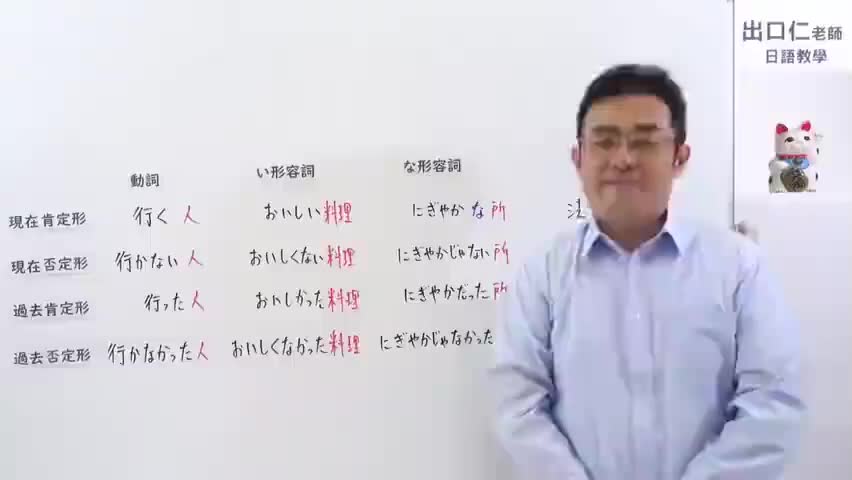 出口仁老師
日語教學
動詞 い形容詞 な形容詞
現在肯定形 行く人 おいしい料理 にぎやかな所 法
現在否定形 行かない人 おいしくない料理 にぎやかじゃない所
過去肯定形 行った人 おいしかった料理 にぎやかだった所
過去否定形 行かなかった人 おいしくなかった料理 にぎやかじゃなかった